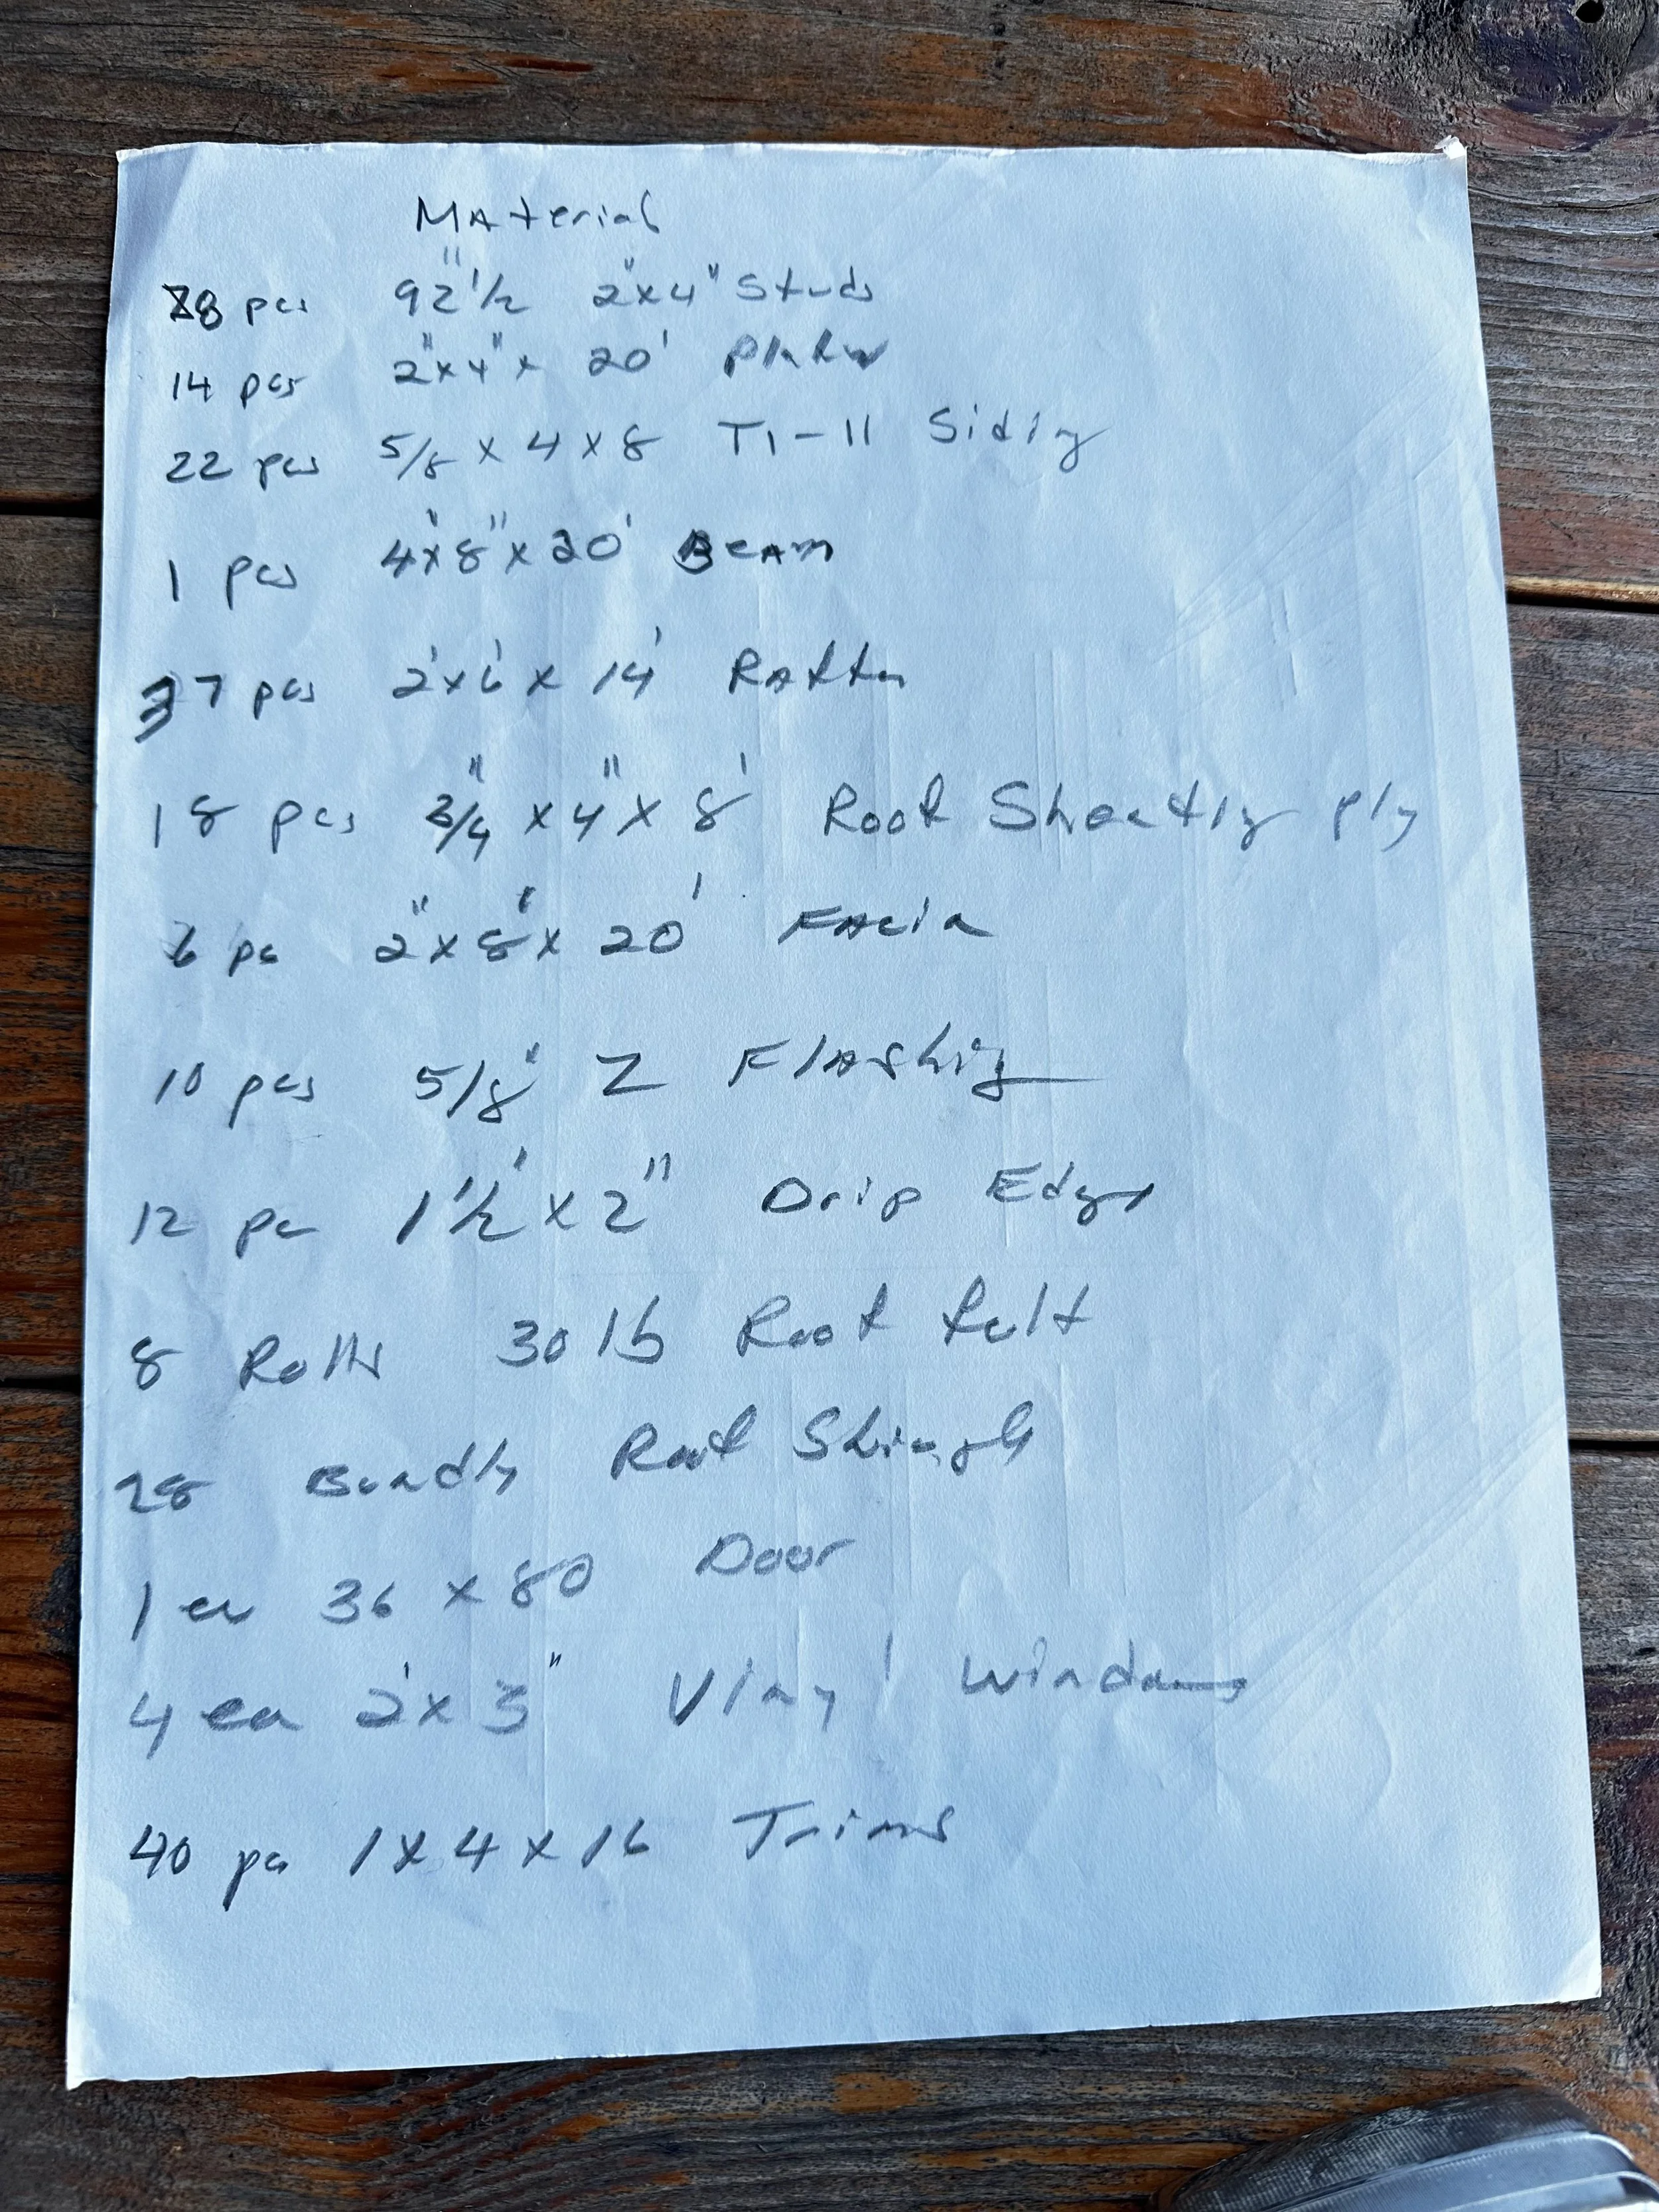 Material
78 pcs 92"1/2 2"x4" Studs
14 pcs 2"x4"x 20' Plates
22 pcs 5/8 x 4 x 8 T1-11 Siding
1 pcs 4'x8"x20' Beam
37 pcs 2'x6'x 14' Rafter
18 pcs 3/4"x4"x 8' Roof Sheeting ply
6 pc 2"x8"x 20' Facia
10 pcs 5/8" Z Flashing
12 pc 1 1/2'x2" Drip Edge
8 Rolls 30 lb Roof felt
28 Bundles Roof Shingles
1 ea 36 x 80 Door
4 ea 2'x3" Vinyl Windows
40 pcs 1x4x16 Trims